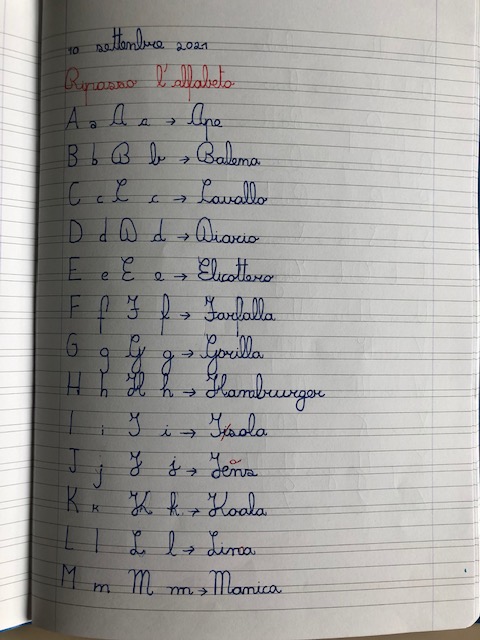 10 settembre 2021
Ripasso l'alfabeto
A a A a → Ape
B b B b → Balena
C c C c → Cavallo
D d D d → Diario
E e E e → Elicottero
F f F f → Farfalla
G g G g → Gorilla
H h H h → Hamburger
I i I i → Isola
J j J j → Jeans
K k K k → Koala
L l L l →
M m M m → Manica